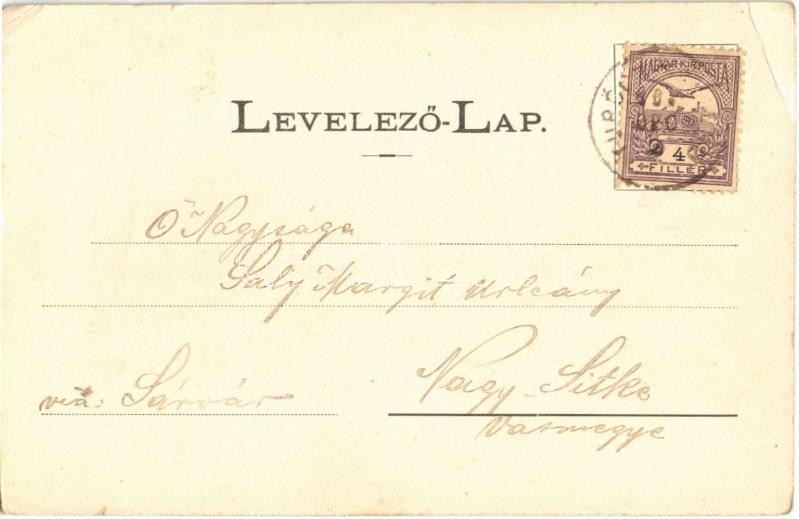 LEVELEZŐ-LAP.
MAGYAR KIR. POSTA
4
FILLÉR
Ő Nagysága
Saly Margit Urleány
via: Sárvár
Nagy-Sitke
Vasmegye